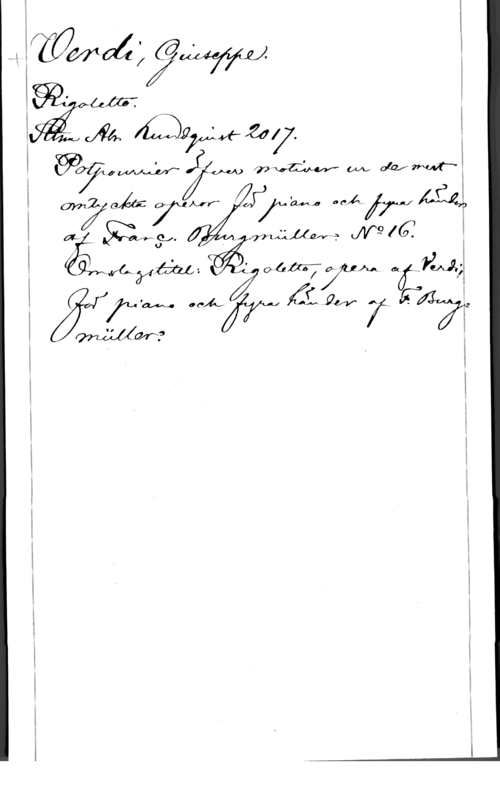 Verdi, Giuseppe.
Rigoletto.
Sthm Abr. Lundquist 2017.
Potpourrier öfver motiver ur de mest
omtyckta operor för piano och fyra händer
af Franç. Burgmüller. No 16.
Omslagstitel: Rigoletto, opera af Verdi,
för piano och fyra händer af F. Burg-
müller.